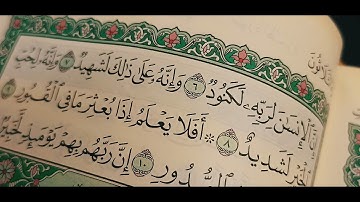 الثلاثون
إِنَّ ٱلْإِنسَـٰنَ لِرَبِّهِۦ لَكَنُودٌ ٦ وَإِنَّهُۥ عَلَىٰ ذَٰلِكَ لَشَهِيدٌ ٧ وَإِنَّهُۥ لِحُبِّ
ٱلْخَيْرِ لَشَدِيدٌ ٨ ۞ أَفَلَا يَعْلَمُ إِذَا بُعْثِرَ مَا فِى ٱلْقُبُورِ ٩
ٱلصُّدُورِ ١٠ إِنَّ رَبَّهُم بِهِمْ يَوْمَئِذٍ لَّخَبِيرٌ